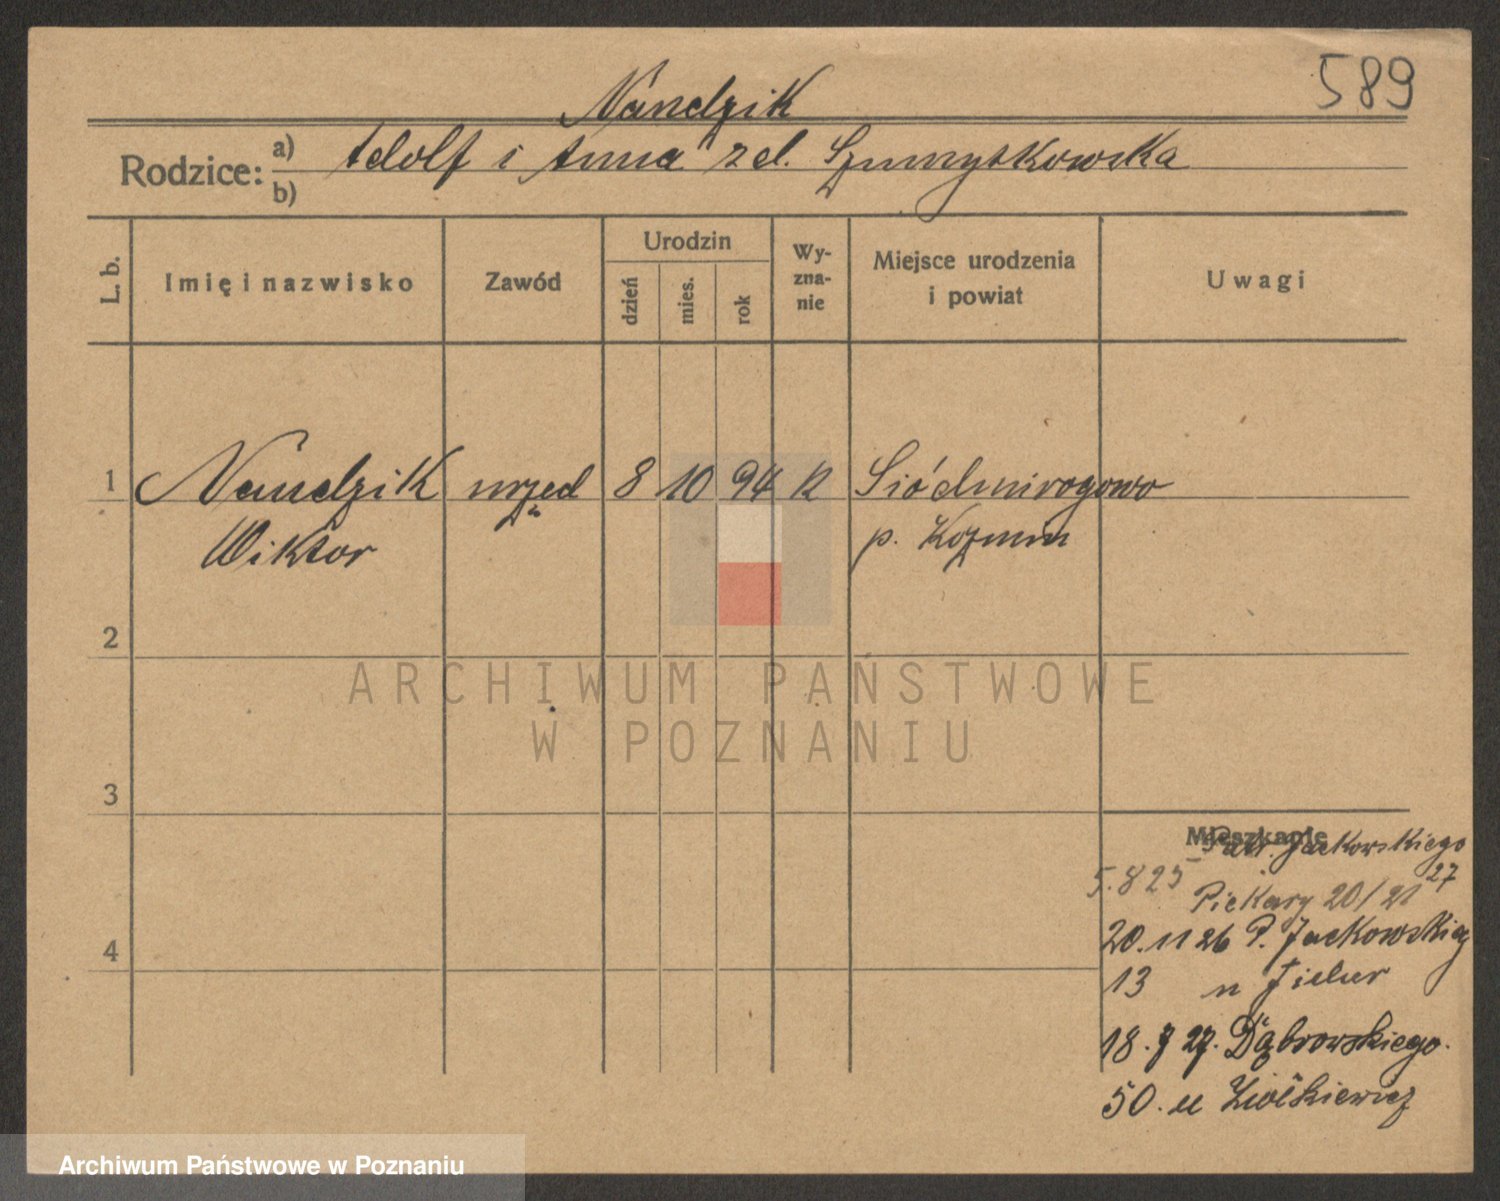 589
Nandzik
Rodzice: a) Adolf i Anna zd. Szumytkowska
b)
L. b. Imię i nazwisko Zawód Urodzin dzień mies. rok Wyznanie Miejsce urodzenia i powiat Uwagi
1 Nandzik urzęd 8 10 94 k Siódmirogowo
Wiktor p. Kozmin
2
ARCHIWUM PAŃSTWOWE
W POZNANIU
3
Mieszkanie
Jackowskiego
5.8 25 27
Piekary 20/21
20. 11 26 P. Jackowskieg
13 u
4
18. 7 27. Dąbrowskiego.
50. u Ziółkiewicz
Archiwum Państwowe w Poznaniu